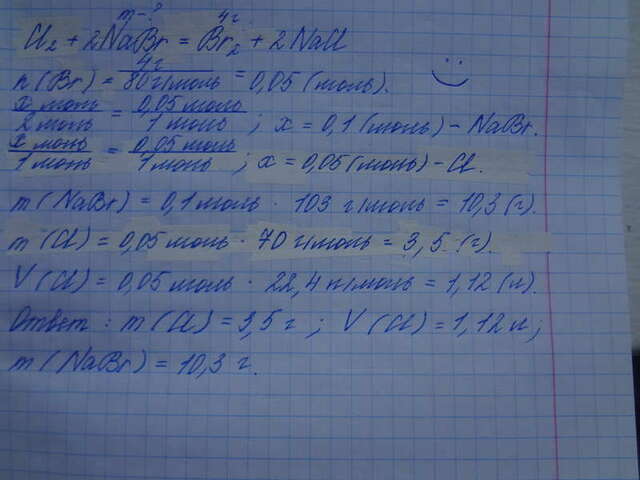 m-? 4г
Cl₂ + 2NaBr = Br₂ + 2NaCl
n(Br) = 4г / 80 г/моль = 0,05 (моль).
x моль / 2 моль = 0,05 моль / 1 моль ; x = 0,1 (моль) - NaBr.
x моль / 1 моль = 0,05 моль / 1 моль ; x = 0,05 (моль) - Cl.
m(NaBr) = 0,1 моль · 103 г/моль = 10,3 (г).
m(Cl) = 0,05 моль · 70 г/моль = 3,5 (г).
V(Cl) = 0,05 моль · 22,4 л/моль = 1,12 (л).
Ответ: m(Cl) = 3,5 г ; V(Cl) = 1,12 л ;
m(NaBr) = 10,3 г.